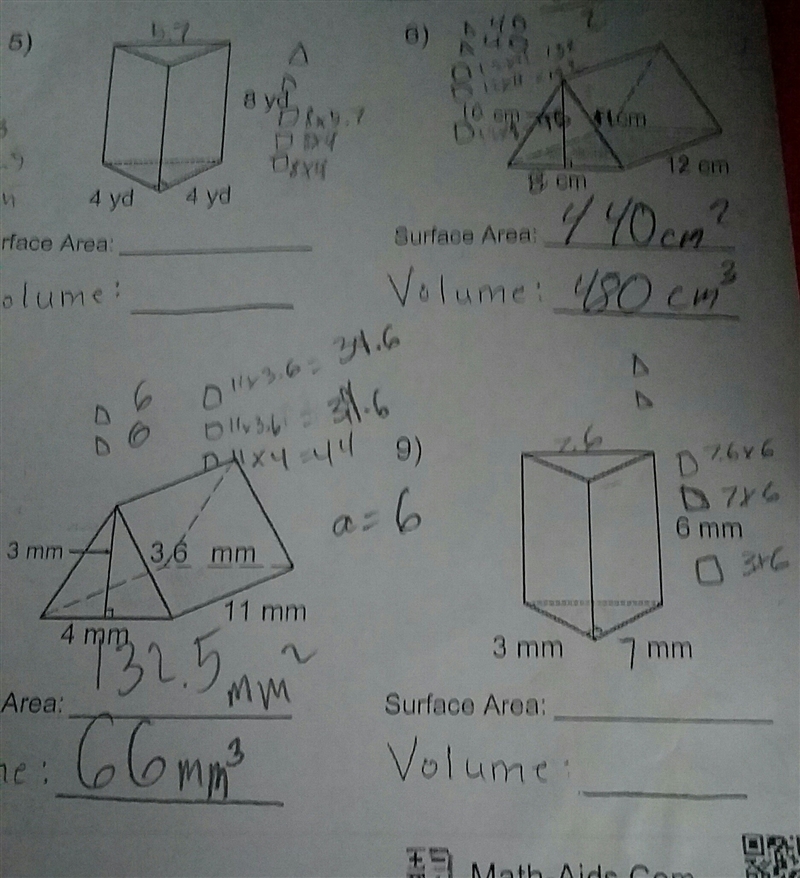 5)
5.7
8 yd
8x5.7
8x4
8x4
4 yd 4 yd
rface Area:
olume:
6)
40
40
10 cm
11cm
8 cm
12 cm
Surface Area: 440cm²
Volume: 480 cm³
6
6
11x3.6 =
11x3.6 =
11x4=44
3 mm
3.6 mm
4 mm
11 mm
Area: 132.5 mm²
ne: 66mm³
9)
a=6
7.6
7.6x6
7x6
6 mm
3x6
3 mm
7 mm
Surface Area:
Volume:
Math-Aids.Com